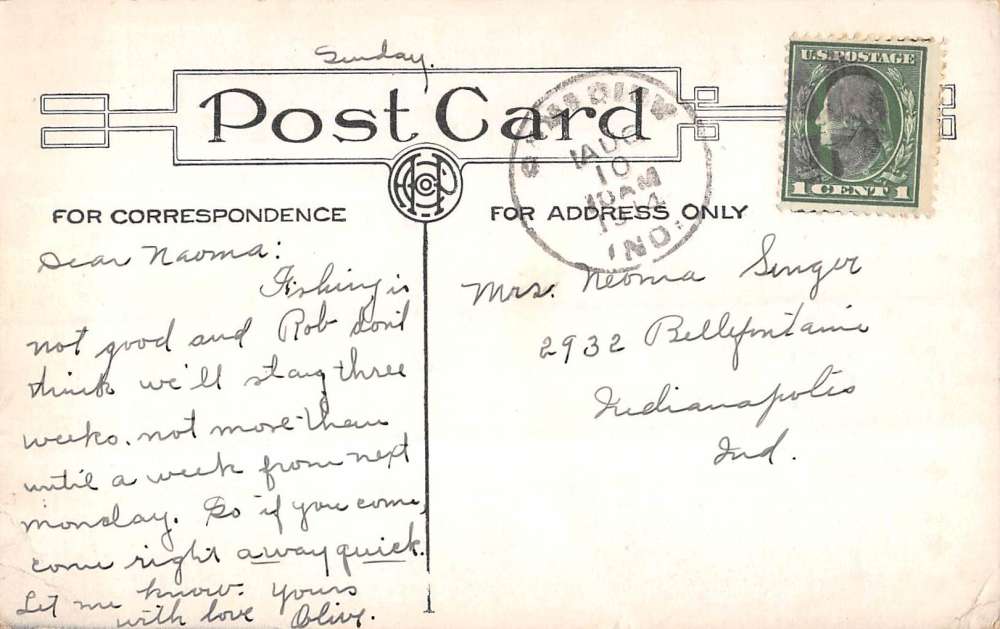 Sunday.
Post Card
AUG
10
10 AM
1914
IND.
U.S. POSTAGE
1 CENT 1
FOR CORRESPONDENCE
FOR ADDRESS ONLY
Dear Naoma:
Fishing is
not good and Rob don't
think we'll stay three
weeks. not more than
until a week from next
monday. So if you come,
come right away quick.
Let me know. Yours
with love Olive.
Mrs. Neoma Singer
2932 Bellefontaine
Indianapolis
Ind.